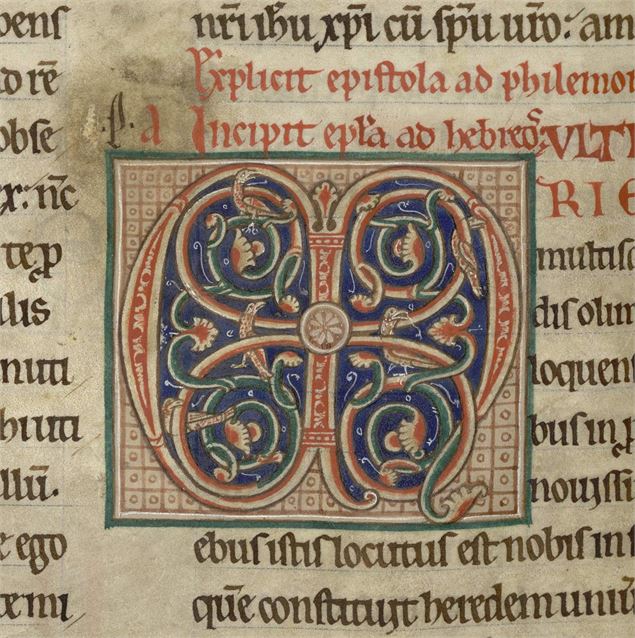 bens
d rē
obse
x: nc̄
llis
nuti
hiuti
llū.
e ego
xmi
nr̄i ih̄u xp̄i cū sp̄u ur̄o: am
Explicit epistola ad philemo
.p. a
Incipit epl̄a ad hebreo᷒ VLTI
RIE
multis
dis olim
loquen
bus in ꝓ
nouissi
ebus istis locutus est nobis in f
quē constituit heredem uniu